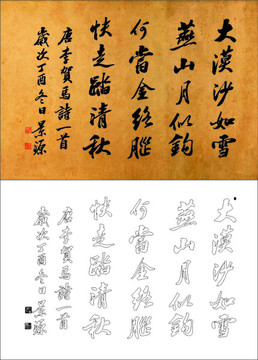 大漠沙如雪
燕山月似鈎
何當金絡腦
快走踏清秋
唐李賀馬詩一首
歲次丁酉冬日景源
大漠沙如雪
燕山月似鈎
何當金絡腦
快走踏清秋
唐李賀馬詩一首
歲次丁酉冬日景源